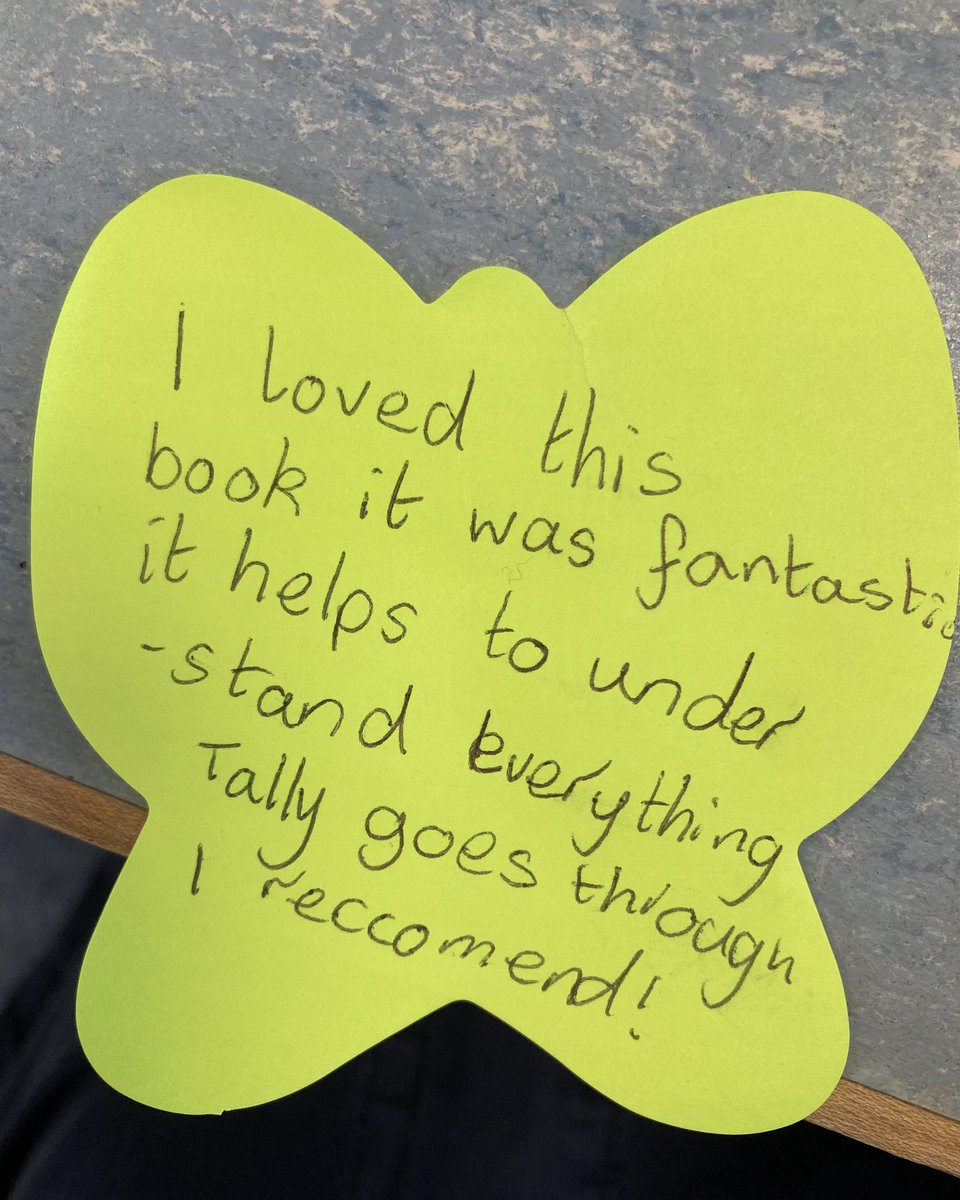 I loved this
book it was fantastic
it helps to under
-stand everything
Tally goes through
I reccomend!